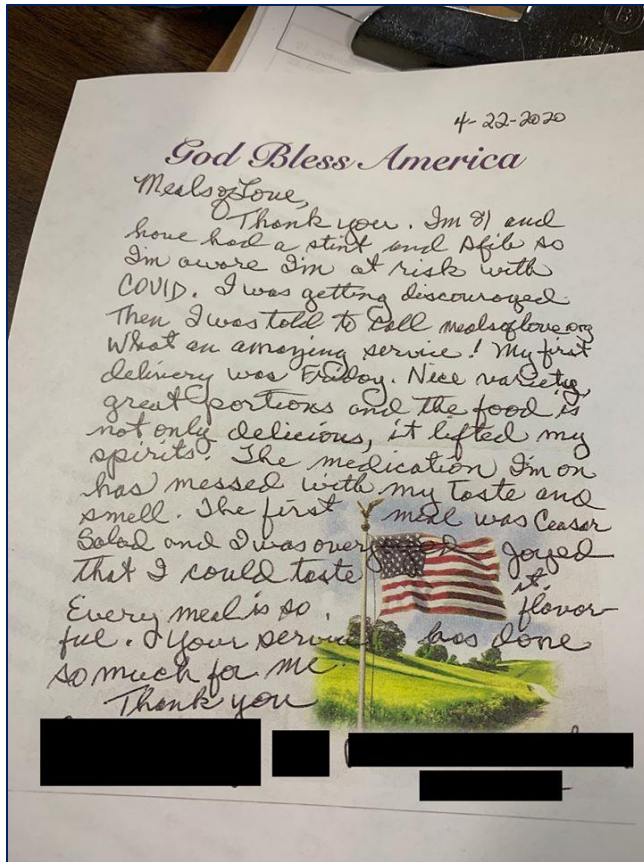 4-22-2020
God Bless America
Meals of Love,
Thank you. I'm 81 and
have had a stint and Afib so
I'm aware I'm at risk with
COVID. I was getting discouraged
Then I was told to call mealsoflove.org
What an amazing service! My first
delivery was Friday. Nice variety,
great portions and the food is
not only delicious, it lifted my
spirits! The medication I'm on
has messed with my taste and
smell. The first meal was Ceasar
Salad and I was over joyed
that I could taste it.
Every meal is so flavor-
ful. Your service has done
so much for me.
Thank you